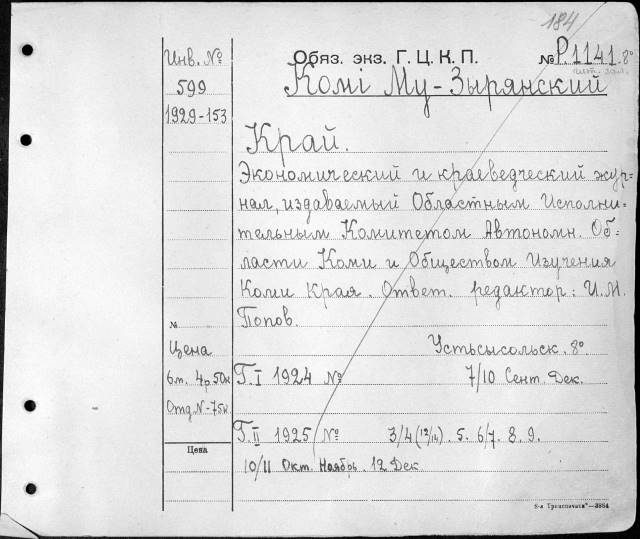 184
Инв. №
599
1929-153
Обяз. экз. Г. Ц. К. П.
№ Р.1141. 8°
Комі Му-Зырянский
Край.
Экономический и краеведческий жур-
нал, издаваемый Областным Исполни-
тельным Комитетом Автономн. Об-
ласти Коми и Обществом Изучения
Коми Края. Ответ. редактор: И.М.
Попов.
№
Цена
6 м. 4р50к
Отд.N-75к.
Цена
Устьсысольск. 8°
Г.I 1924 № 7/10 Сент. Дек.
Г.II 1925 № 3/4 (13/14). 5. 6/7. 8. 9.
10/11 Окт. Ноябрь. 12 Дек